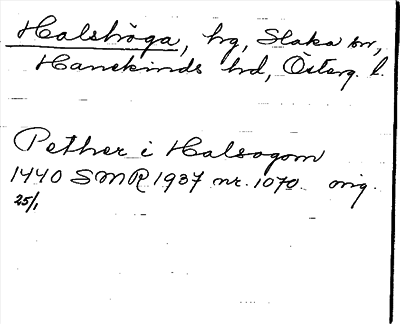 Halshöga, hg, Slaka sn,
Hanekinds hd, Österg. l.
Pether i Halsogom
1440 SMR 1937 nr. 1070 orig.
25/1